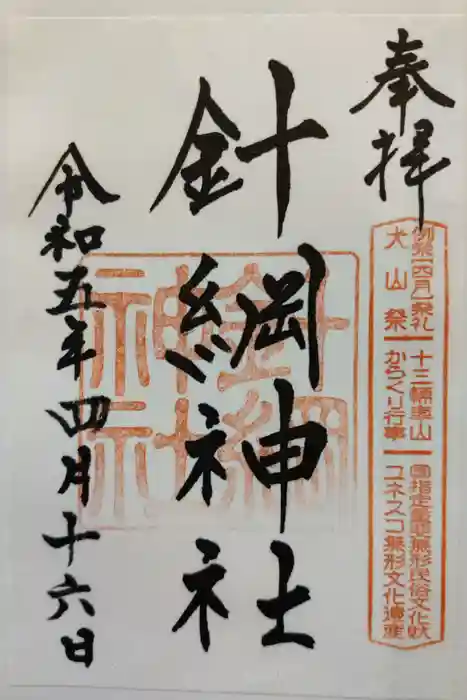 奉拝
例祭【四月】祭礼
犬山祭
十三輌車山
からくり行事
国指定重要無形民俗文化財
ユネスコ無形文化遺産
針綱神社
針綱神社
令和五年四月十六日